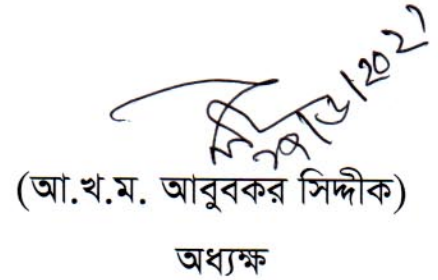 (আ.খ.ম. আবুবকর সিদ্দীক)
অধ্যক্ষ